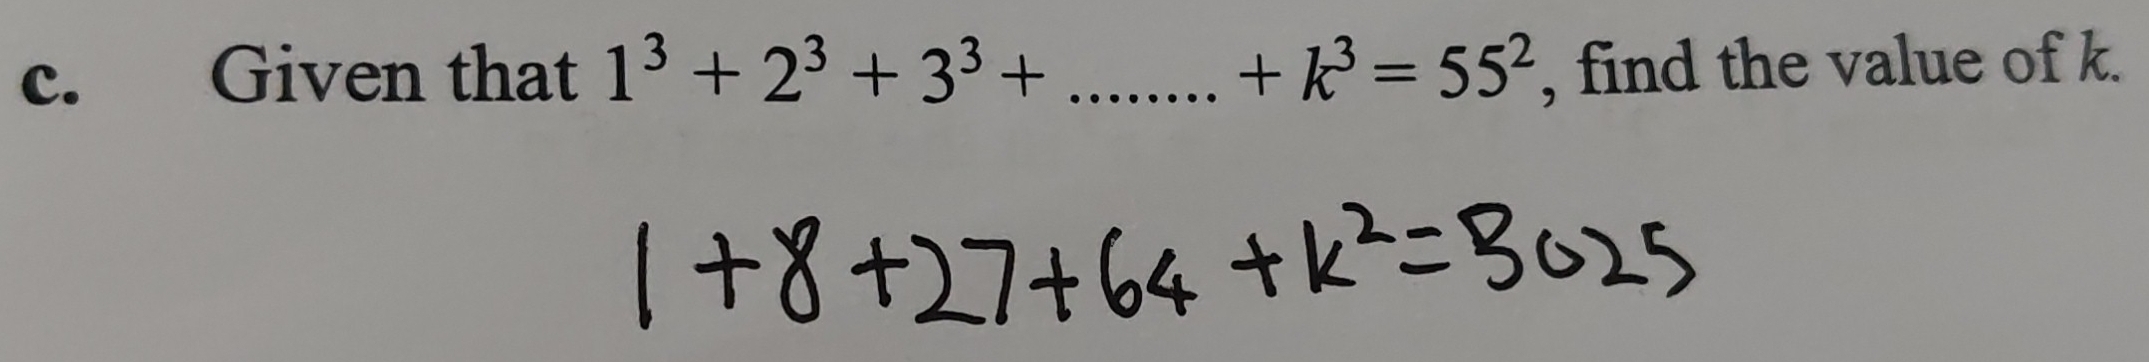 c. Given that 1³ + 2³ + 3³ + ........ + k³ = 55², find the value of k.
1 + 8 + 27 + 64 + k² = 3025